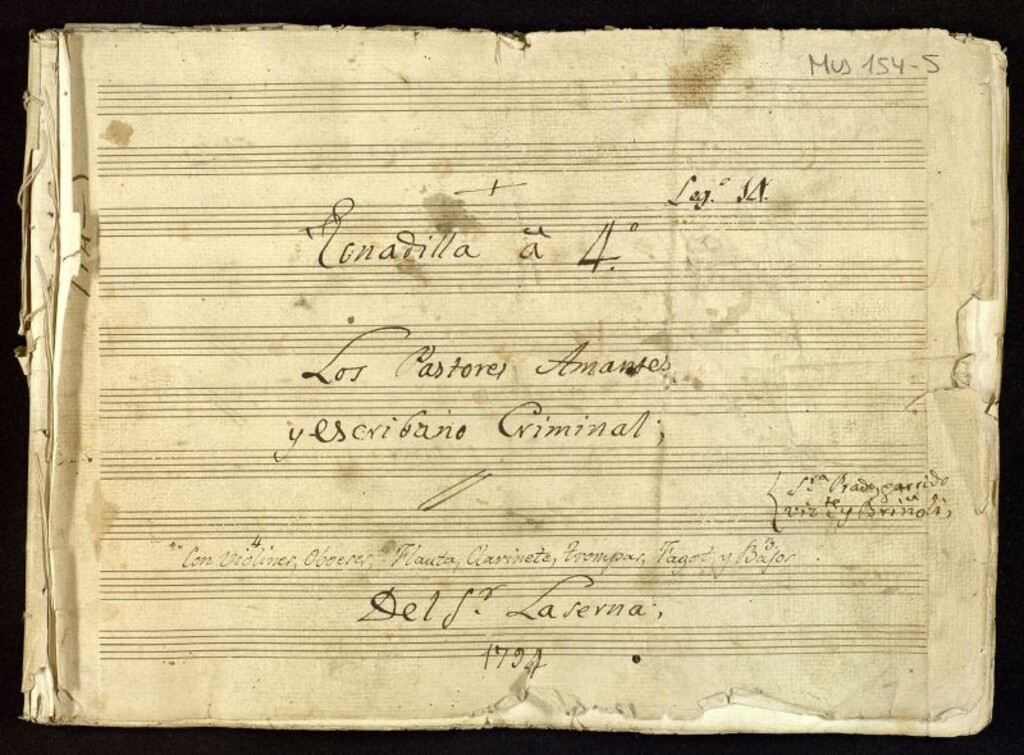 Mus 154-5
Leg.º 14.
Tonadilla â 4.º
Los Pastores Amantes
y escribano Criminal;
Sra Prado, garrido
vizte y Briñoli,
Con Violines, Oboeses, Flauta, Clarinete, trompas, Fagot, y Bajos
4 3
Del Sr. Laserna;
1794